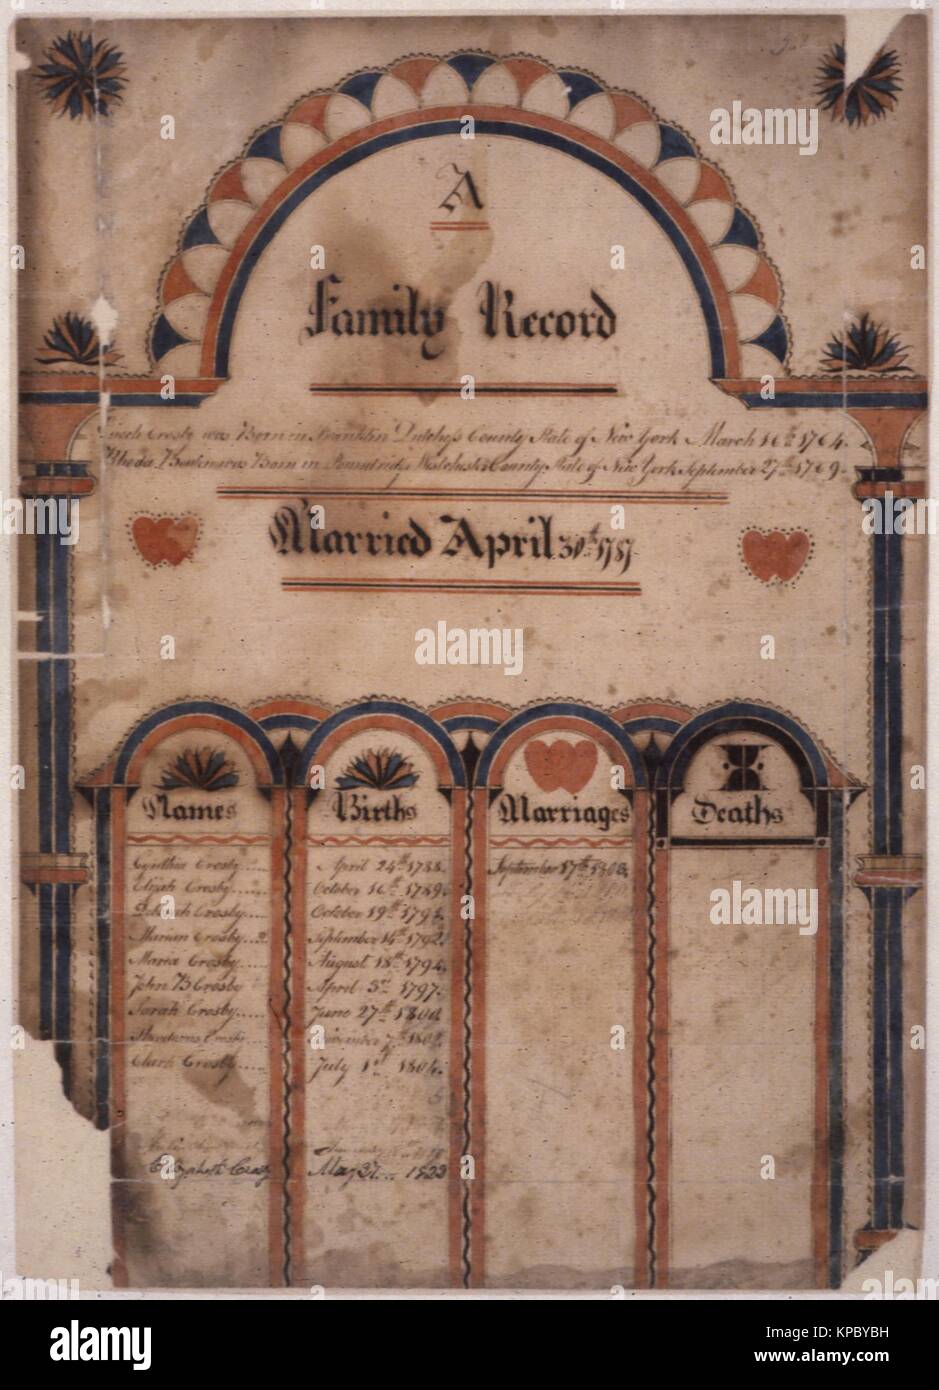 A
Family Record
Enoch Crosby was Born in Franklin Dutchess County State of New York March 16th 1764.
Rhoda was Born in Westchester County State of New York September 27th 1769.
Married April 30th 1787
Names Births Marriages Deaths
Cynthia Crosby.... April 24th 1788. September 17th 1808.
Elijah Crosby.... October 16th 1789.
Deborah Crosby.... October 19th
Crosby.... September 14th 1792.
Maria Crosby.... August 18th 1794.
John B Crosby April 3rd 1797.
Sarah Crosby.... June 27th 1800.
Crosby 7th 1802.
Clark Crosby.... July 1st 1804.
Elizabeth Crosby May 27... 1823
alamy
alamy stock photo
KPBYBH
www.alamy.com